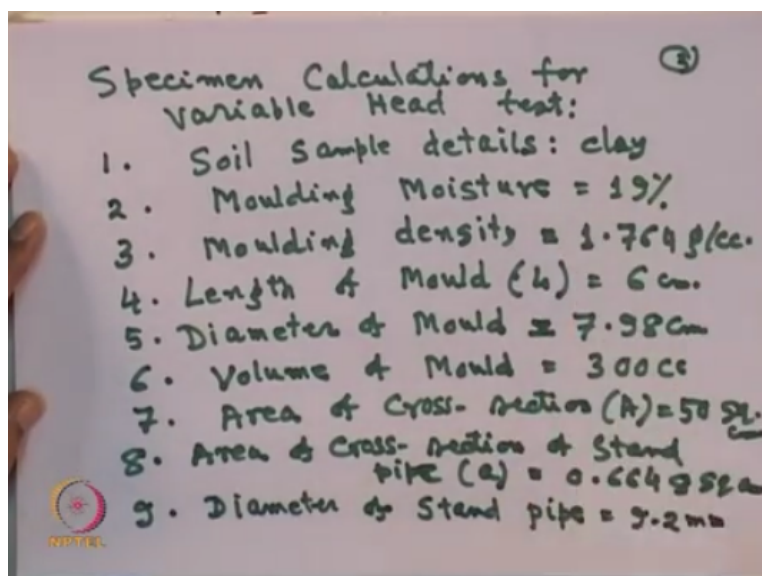 ③
Specimen Calculations for
Variable Head test:
1. Soil Sample details: clay
2. Moulding Moisture = 19%
3. Moulding density = 1.764 g/cc.
4. Length of Mould (L) = 6 cm.
5. Diameter of Mould = 7.98 cm
6. Volume of Mould = 300 cc
7. Area of Cross-section (A) = 50 sq. cm
8. Area of Cross-section of Stand
pipe (a) = 0.6648 sq cm
9. Diameter of Stand pipe = 9.2 mm
NPTEL